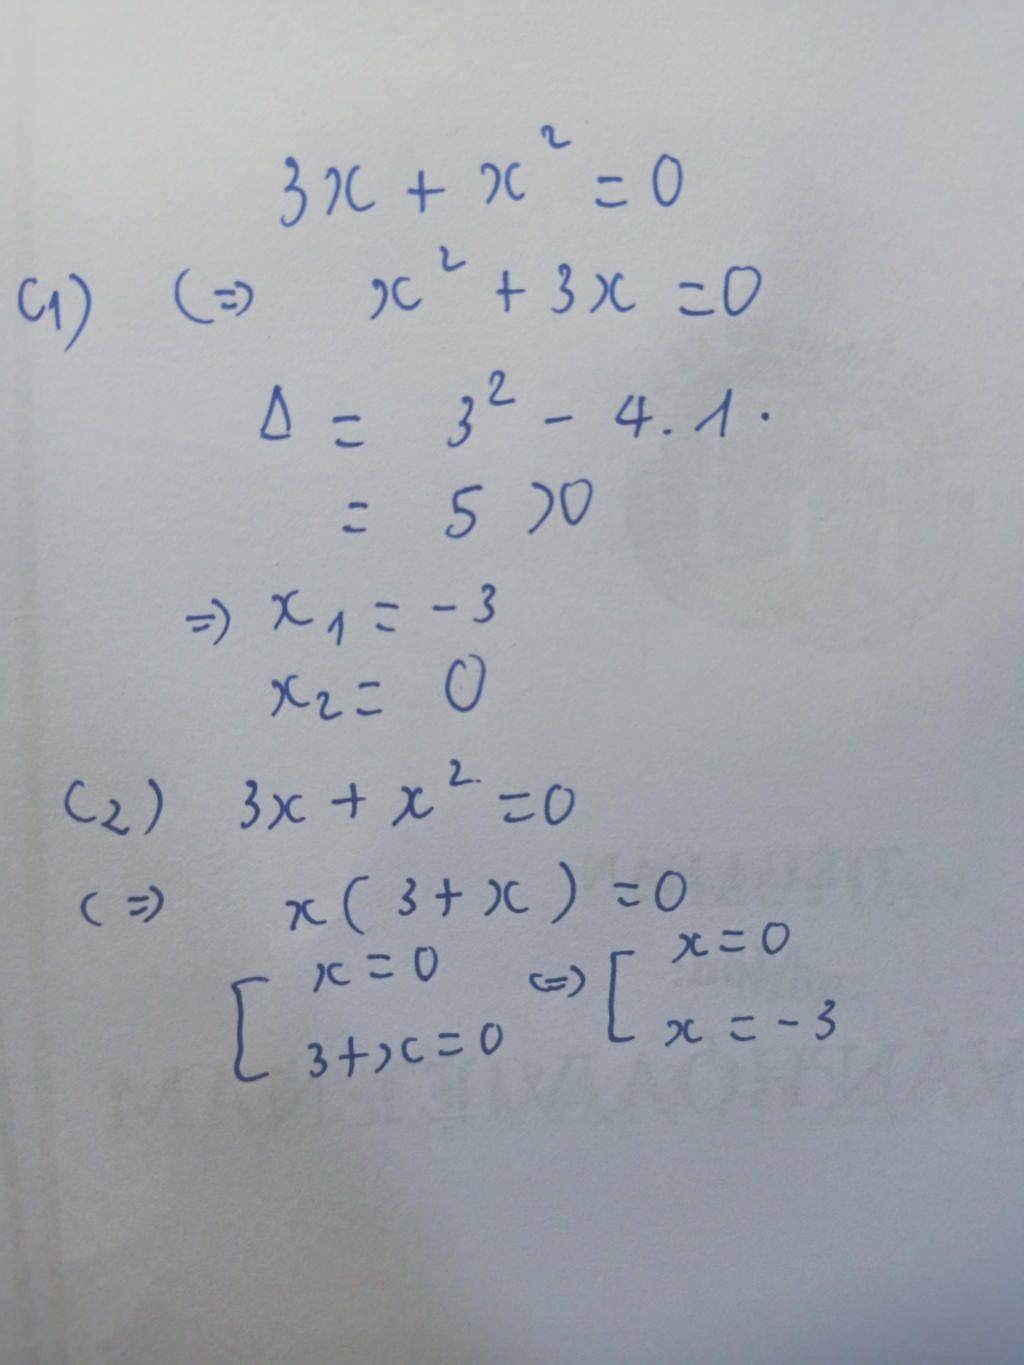 3x + x² = 0
C1) (=) x² + 3x = 0
Δ = 3² - 4.1.
= 5 >0
=) x₁ = -3
x₂ = 0
C2) 3x + x² = 0
(=) x(3+x) = 0
[ x = 0 (=) [ x = 0
3+x = 0 x = -3